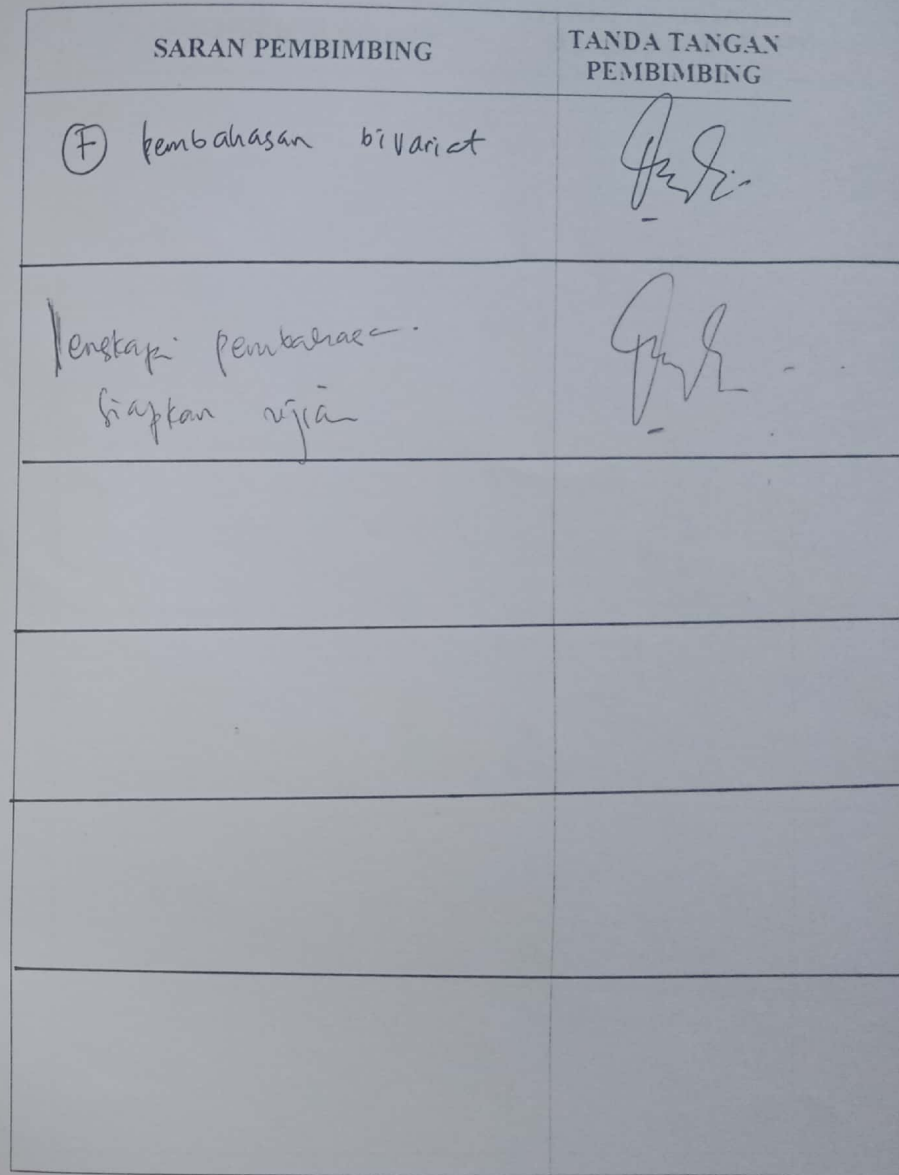 SARAN PEMBIMBING
TANDA TANGAN
PEMBIMBING
pembahasan bivariat
lengkapi pembahasan.
siapkan ujian